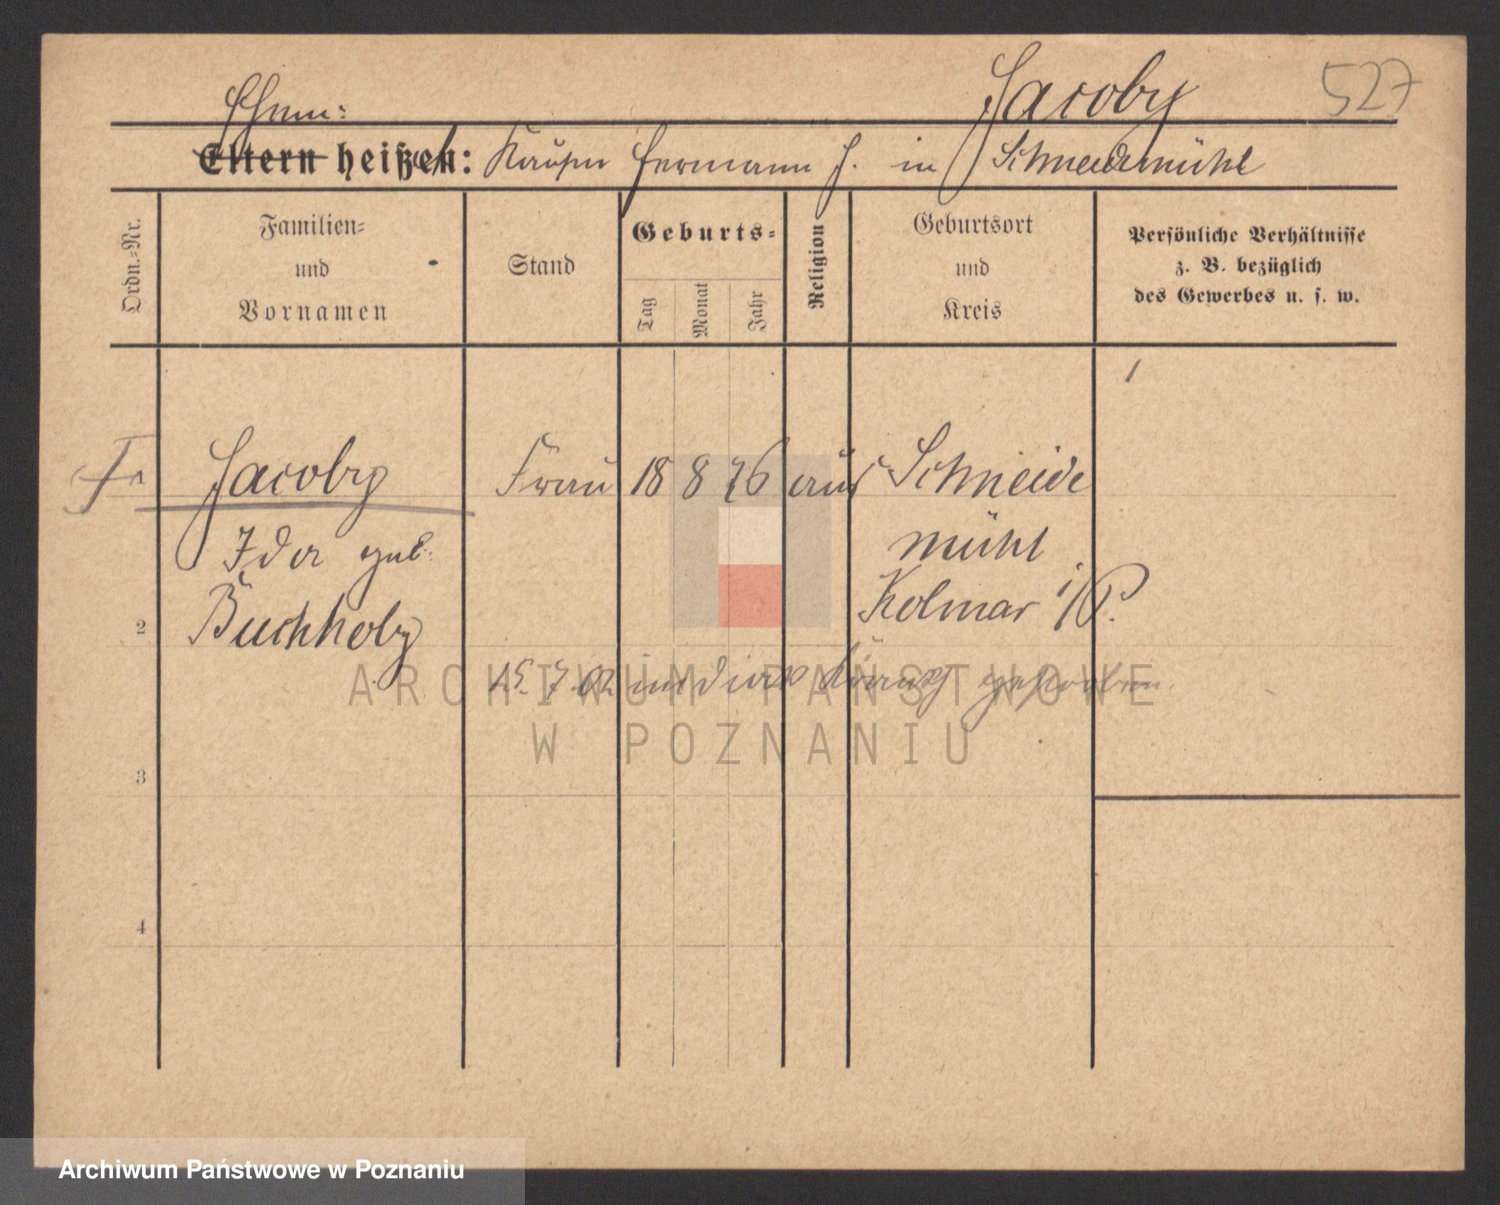 Jacoby 527
Ehem:
Eltern heißen: Kaufm Hermann J. in Schneidemühl
Ordn.=Nr.
Familien=
und
Vornamen
Stand
Geburts=
Tag
Monat
Jahr
Religion
Geburtsort
und
Kreis
Persönliche Verhältnisse
z. B. bezüglich
des Gewerbes u. s. w.
Jacoby Frau 18 8 76 Schneide
Ida geb. mühl
2 Buchholz Kolmar i/P.
15. 7. 02 gestorben.
ARCHIWUM PAŃSTWOWE
W POZNANIU
3
4
Archiwum Państwowe w Poznaniu